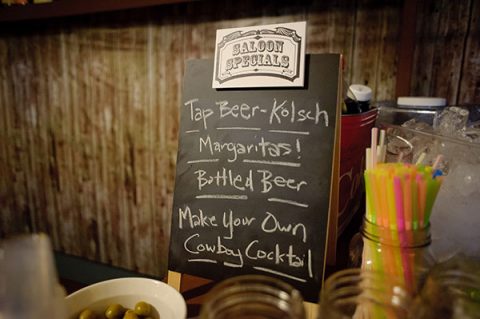 SALOON
SPECIALS
Tap Beer-Kolsch
Margaritas!
Bottled Beer
Make Your Own
Cowboy Cocktail